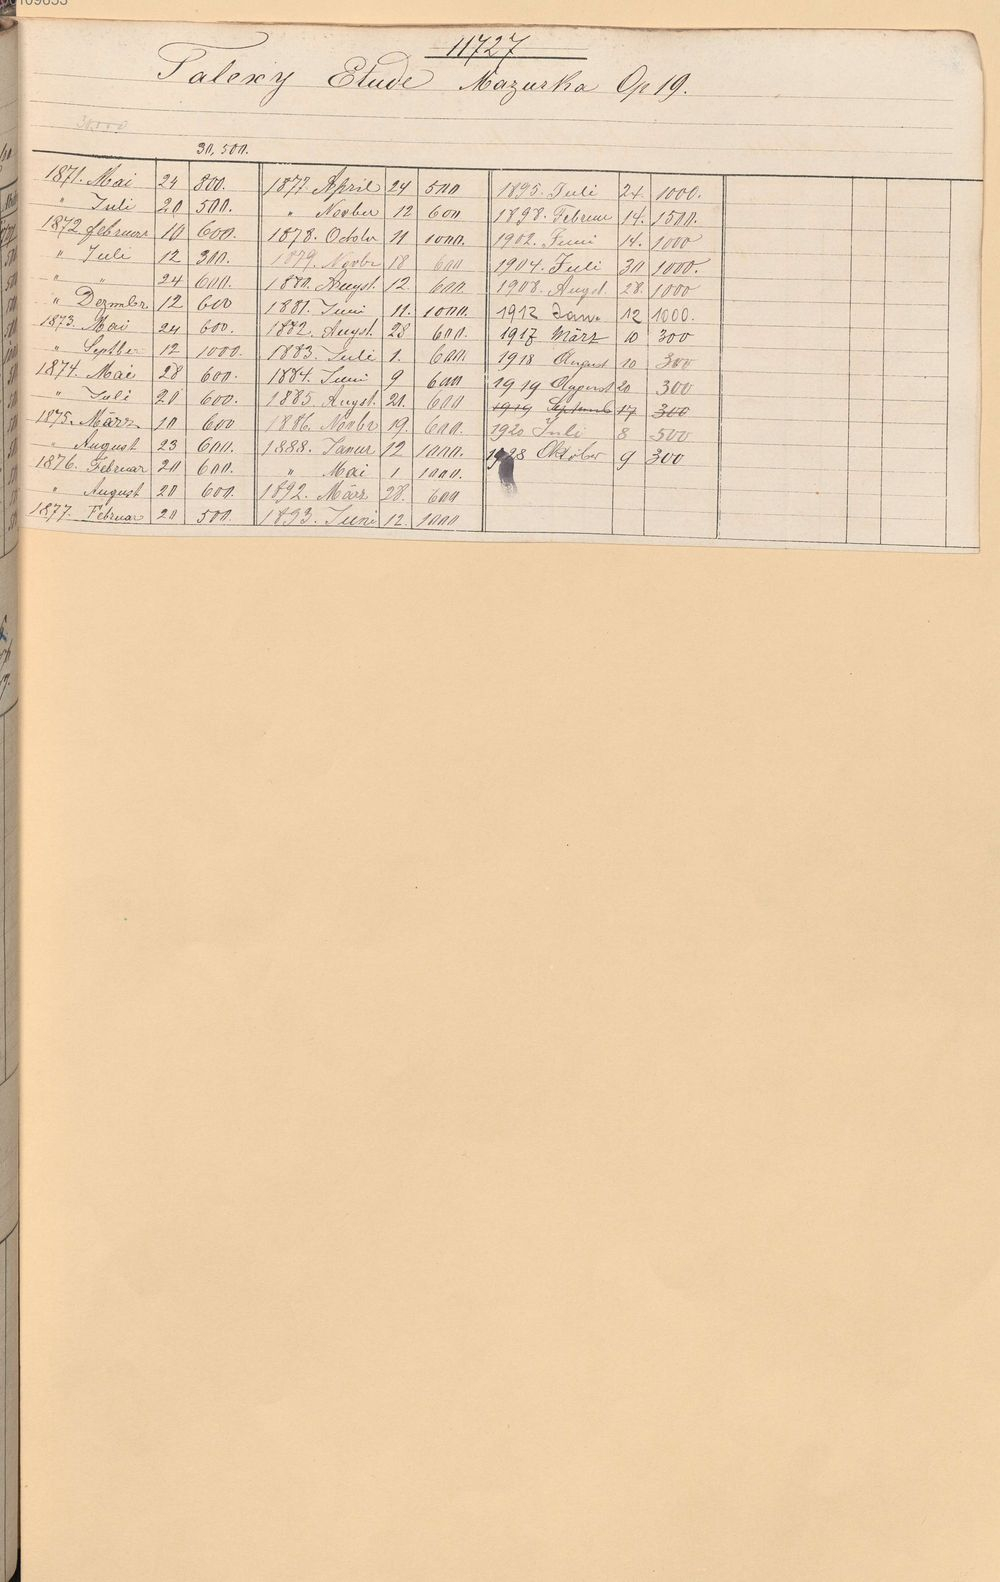 11727
Talexy Etude Mazurka Op 19.
30,000
30,500.
1871. Mai 24 800.
" Juli 20 500.
1872 februar 10 600.
" Juli 12 300.
" " 24 600.
" Dezmbr 12 600
1873. Mai 24 600.
" Septber 12 1000.
1874. Mai 28 600.
" Juli 20 600.
1875. März 10 600
" August 23 600.
1876. Februar 20 600.
" August 20 600.
1877. Februar 20 500.
1877. April 24 500
" Novber 12 600
1878. Octobr 11 1000.
1879. Novbr 18 600
1880. Augst. 12. 600
1881. Juni 11. 1000.
1882. Augst. 28 600.
1883. Juli 1. 600.
1884. Juni 9 600
1885. Augst. 21. 600
1886. Novbr 19. 600.
1888. Januar 12 1000.
" Mai 1 1000.
1892. März 28. 600
1893. Juni 12. 1000
1895. Juli 24. 1000.
1898. Februar 14. 1500.
1902. Juni 14. 1000
1904. Juli 30 1000.
1908. Augst. 28. 1000
1912 Jan. 12 1000.
1917 März 10 300
1918 August 10 300
1919 August 20 300
1919 Septemb 17 300
1920 Juli 8 500
1928 Oktober 9 300